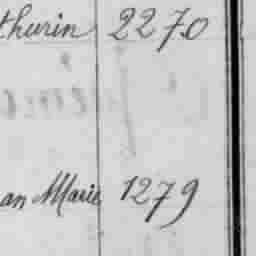 thurin 2270
an Marie 1279